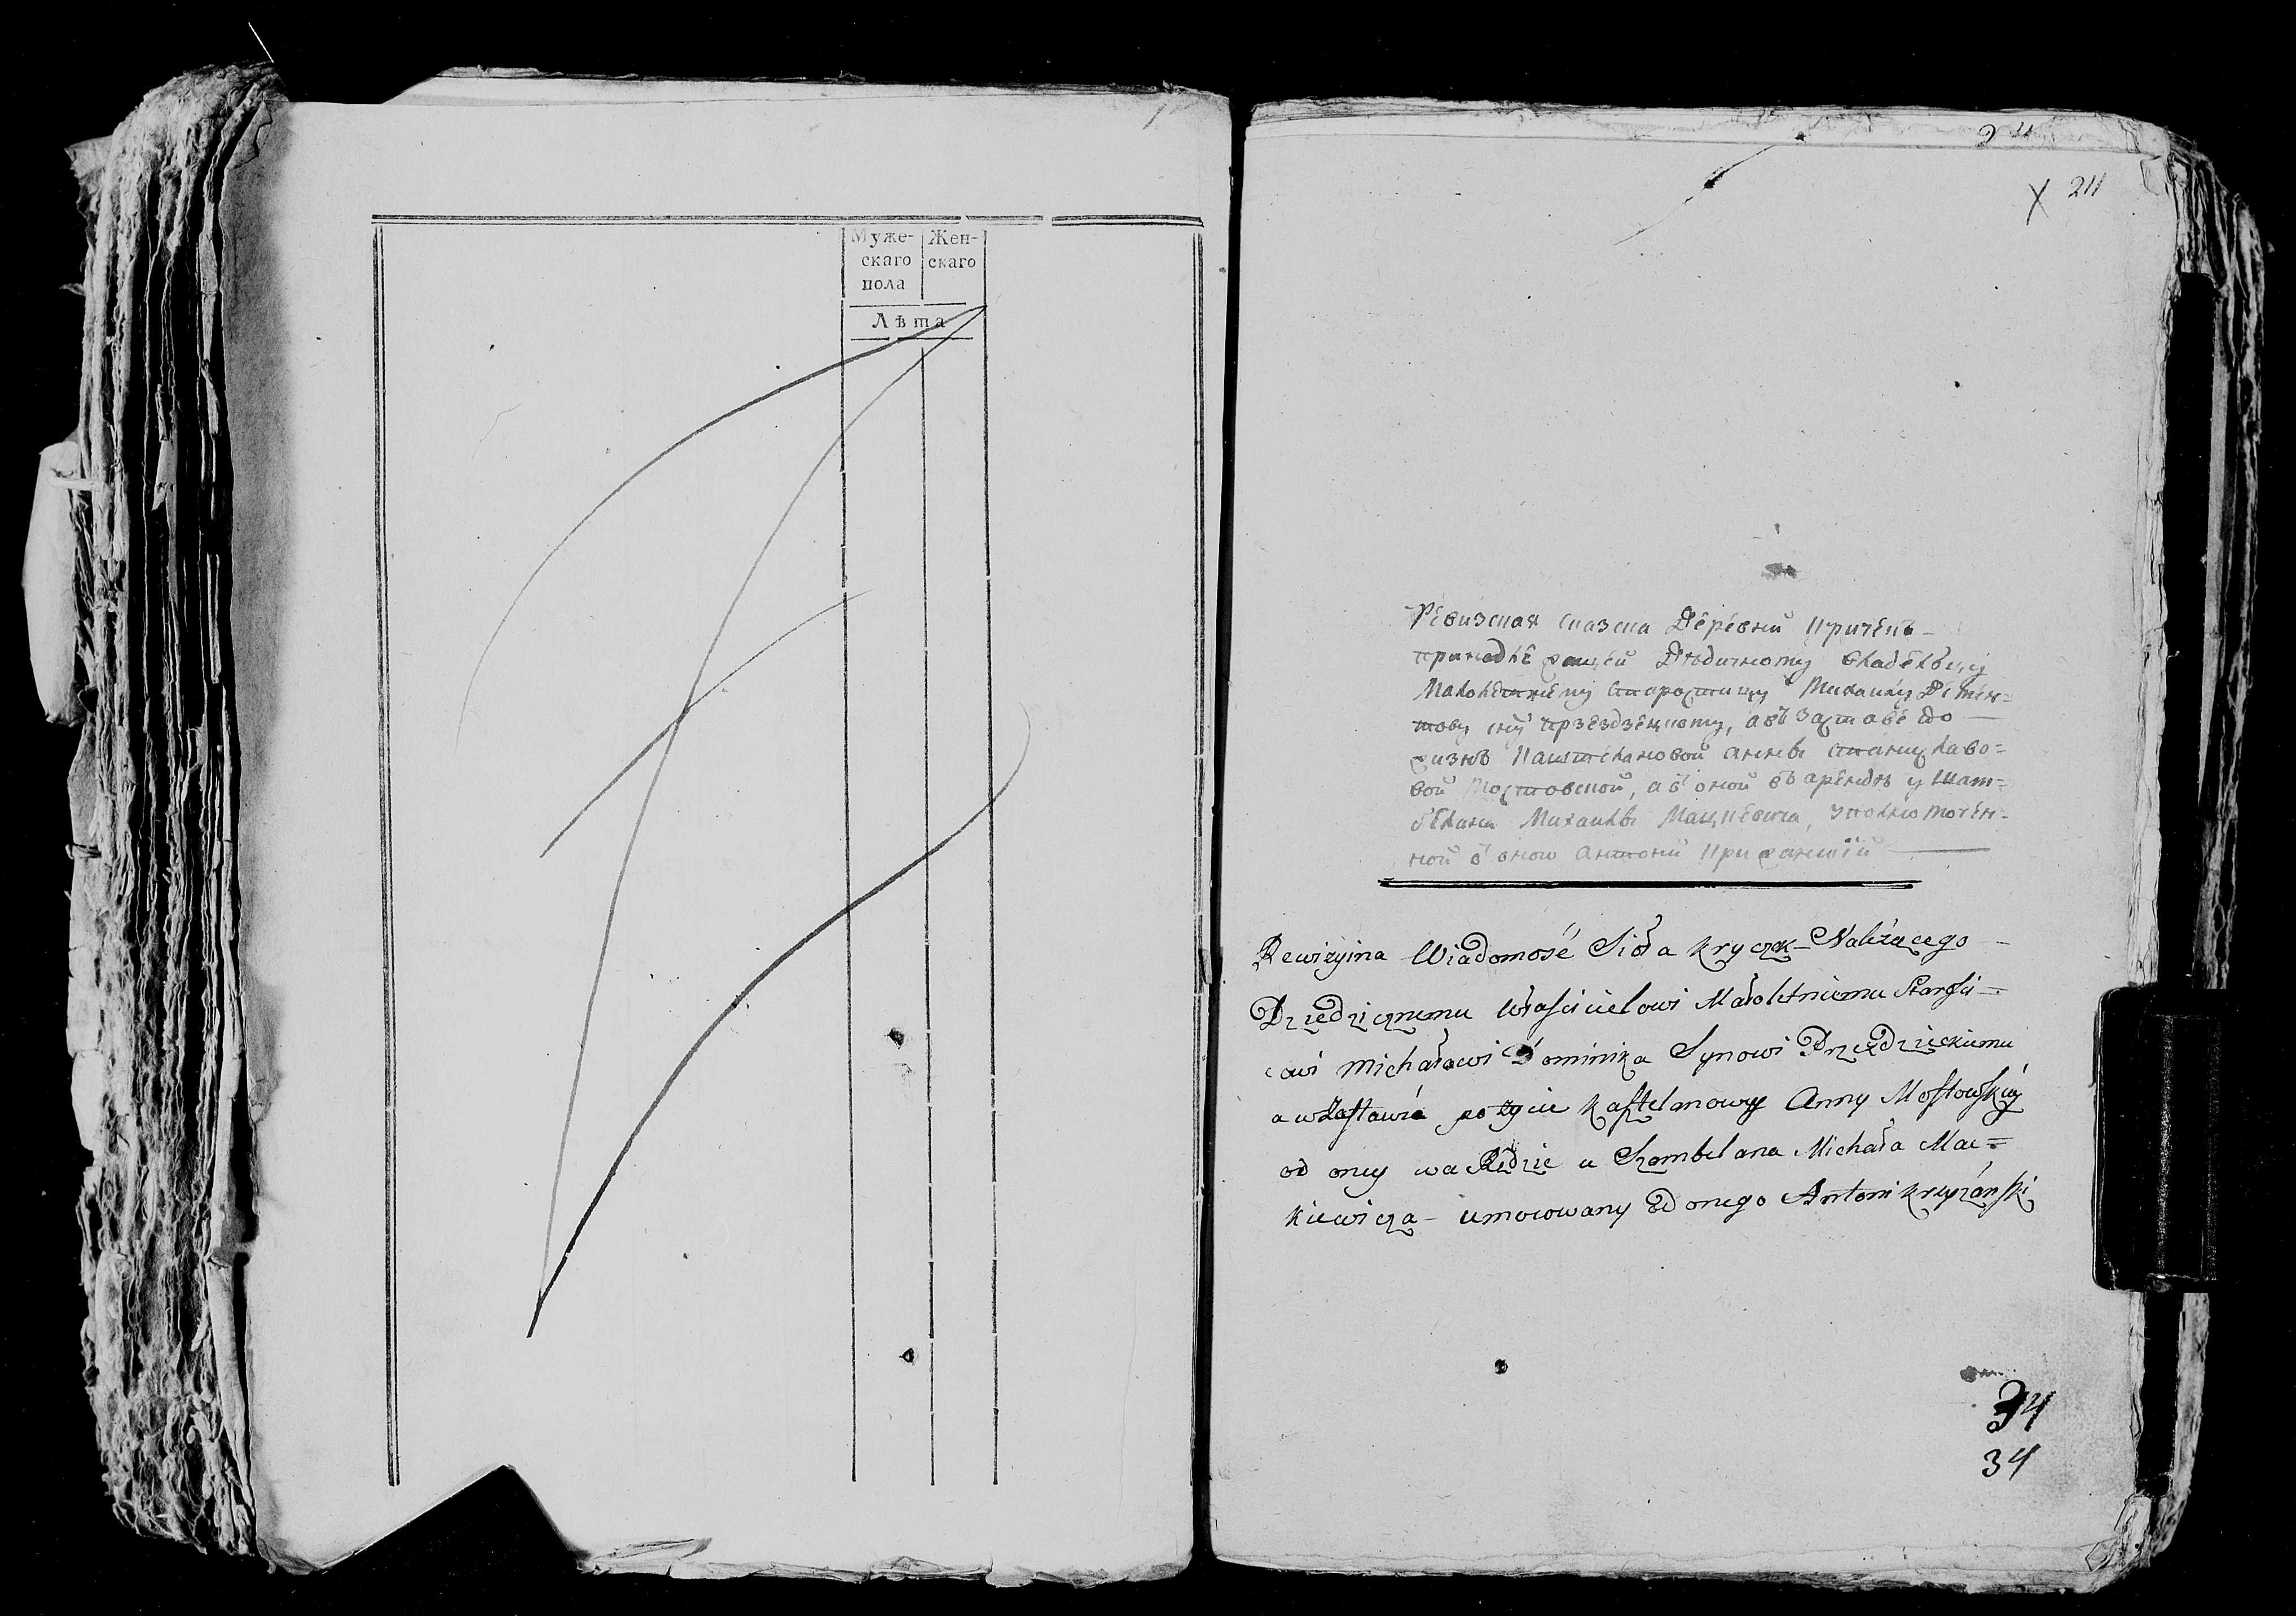 Муже-
скаго
пола
Жен-
скаго
Лѣта
24
X 211
Ревизская сказка Деревни Кричекъ
принадлежащей Дѣдичному владѣльцу
Малолетнему Старостицу Михаилу Демен-
тову сну Прзездзецкому, а въ Заставе до
жизнѣ Каштеляновой Аннѣ Станиславо-
вой Мостовской, а в оной въ арендѣ у Шам-
беляна Михаила Мацкевича, уполномочен-
ной в оного Антоній Крижанскій
Rewizyina Wiadomość Sioła Kryczek Należącego
Dziedzicznemu Właścicielowi Małoletniemu Starości=
cowi Michałowi Dominika Synowi Przezdzieckiemu
a w Zastawie po życie Kasztelanowy Anny Mostowskiey
od oney w aRędzie u Szambelana Michała Mac=
kiewicza – umocowany od onego Antoni Kryżański
34
34